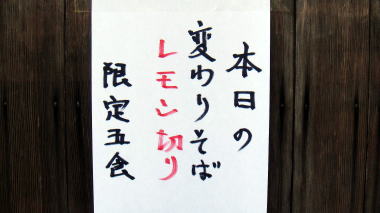 本日の
変わりそば
レモン切り
限定五食